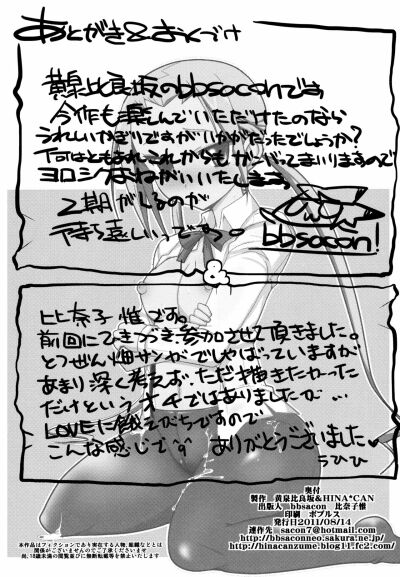 あとがき&おくづけ
黄泉比良坂のbbsaconです
今作も楽しんでいただけたのなら
うれしいかぎりですがいかがだったでしょうか?
何はともあれこれからもがんばってまいりますので
ヨロシくおねがいいたします
2期がしるのが
待ち遠しいってっす。
bbsacon!
&
比奈子惟です。
前回にひきつづき、参加させて頂きました。
とつぜん畑サンがでしゃばっていますが
あまり深く考えず、ただ描きたかった
だけというオチではありましたが…
LOVEに飢えぎちですので
こんな感じで^q^ ありがとうございました♥
ちひひ
奥付
製作 黄泉比良坂&HINA*CAN
出版人 bbsacon 比奈子惟
印刷 ポプルス
発行日2011/08/14
連作先 sacon7@hotmail.com
http://bbsaconneo.sakura.ne.jp/
http://hinacanzume.blog11.fc2.com/
本作品はフィクションであり実在する人物、組織などとは
関係がございませんのであしからず。
尚、18歳未満の閲覧並びに無断転載等も禁止いたします